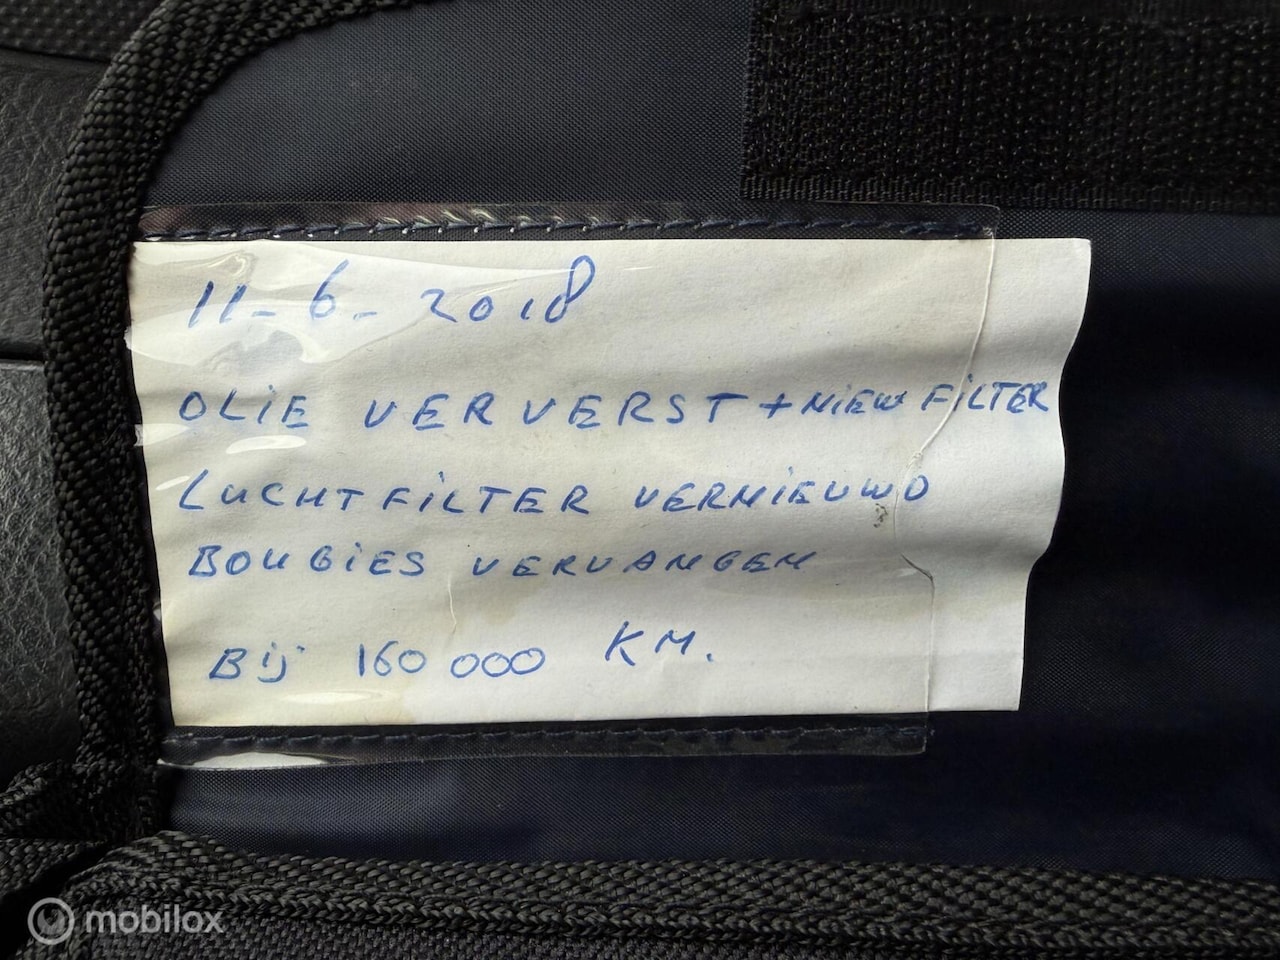 11-6-2018
OLIE VERVERST + NIEW FILTER
LUCHTFILTER VERNIEUWD
BOUGIES VERVANGEN
Bij 160 000 KM.
mobilox